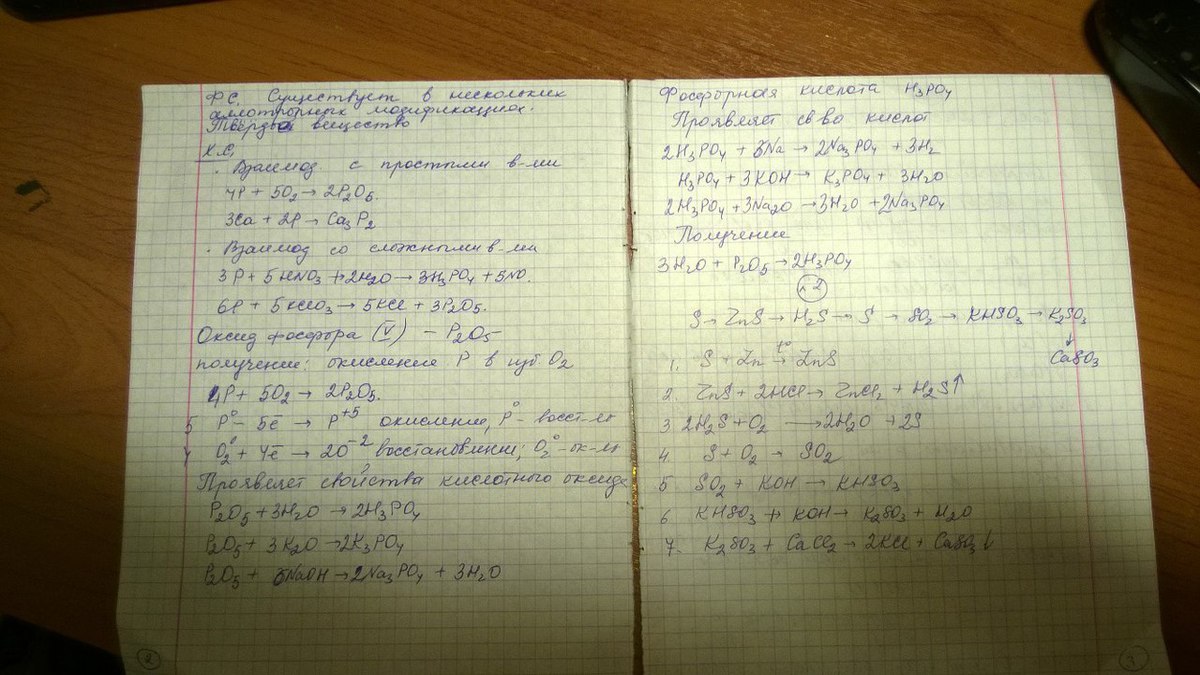 Ф.С. Существует в нескольких
аллотропных модификациях.
Твёрдое вещество
Х.С.
· Взаимод с простыми в-ми
4P + 5O₂ → 2P₂O₅.
3Ca + 2P → Ca₃P₂
· Взаимод со сложными в-ми
3P + 5HNO₃ + 2H₂O → 3H₃PO₄ + 5NO.
6P + 5KClO₃ → 5KCl + 3P₂O₅.
Оксид фосфора (V) – P₂O₅
получение: окисление P в изб. O₂
4P + 5O₂ → 2P₂O₅.
5 P⁰ – 5ē → P⁺⁵ окисление, P⁰ – восст-ль
4 O₂⁰ + 4ē → 2O⁻² восстановление; O₂⁰ – ок-ль
Проявляет свойства кислотного оксида
P₂O₅ + 3H₂O → 2H₃PO₄
P₂O₅ + 3K₂O → 2K₃PO₄
P₂O₅ + 6NaOH → 2Na₃PO₄ + 3H₂O
2
Фосфорная кислота H₃PO₄
Проявляет св-во кислот
2H₃PO₄ + 6Na → 2Na₃PO₄ + 3H₂
H₃PO₄ + 3KOH → K₃PO₄ + 3H₂O
2H₃PO₄ + 3Na₂O → 3H₂O + 2Na₃PO₄
Получение
3H₂O + P₂O₅ → 2H₃PO₄
№2
S → ZnS → H₂S → S → SO₂ → KHSO₃ → K₂SO₃
↓
CaSO₃
1. S + Zn →(t°) ZnS
2. ZnS + 2HCl → ZnCl₂ + H₂S↑
3. 2H₂S + O₂ → 2H₂O + 2S
4. S + O₂ → SO₂
5. SO₂ + KOH → KHSO₃
6. KHSO₃ + KOH → K₂SO₃ + H₂O
7. K₂SO₃ + CaCl₂ → 2KCl + CaSO₃↓
3